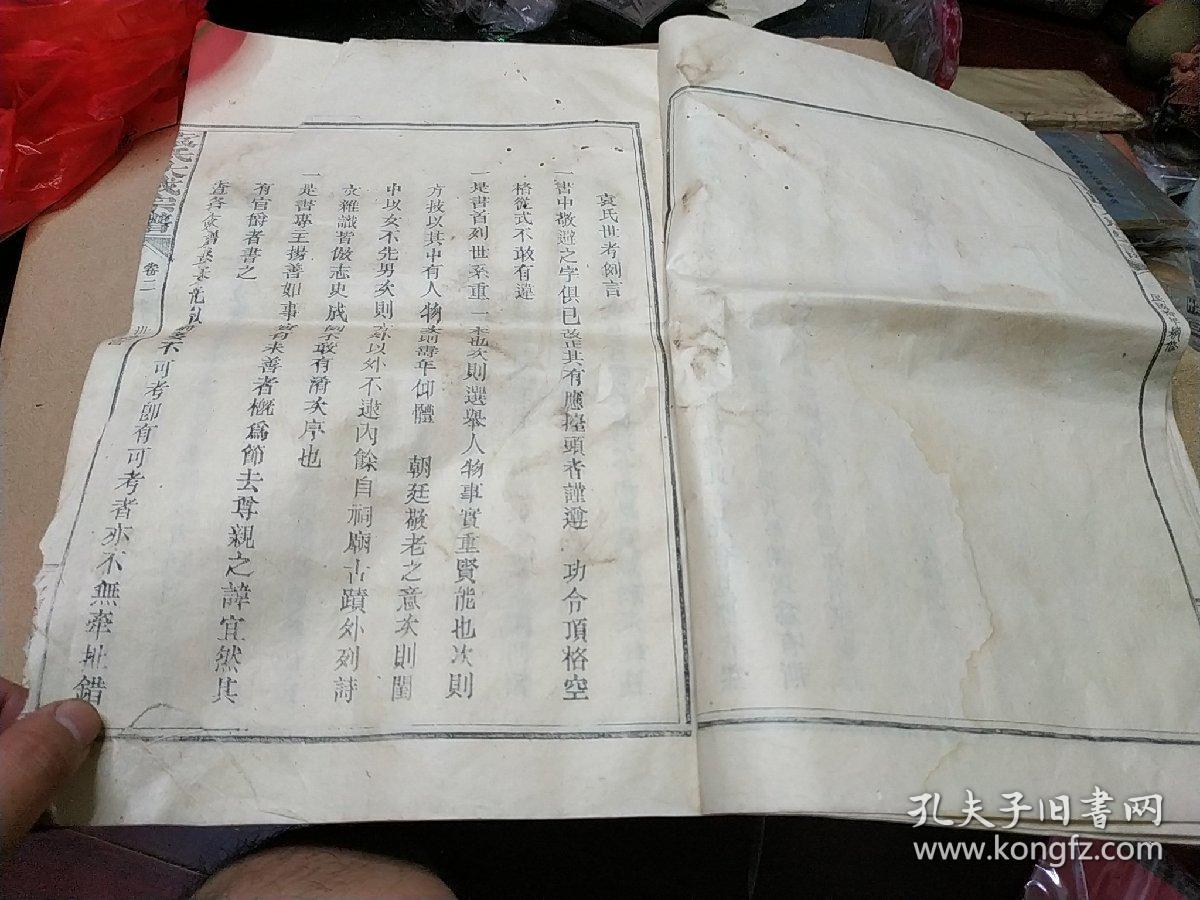 袁氏世考例言
一書中敬避之字俱已改正其有應擡頭者謹遵 功令頂格空
格從式不敢有違
一是書首列世系重一本也次則選舉人物事實重賢能也次則
方技以其中有人物請壽年仰體 朝廷敬老之意次則閨
中以女不先男次則亦以外不逮內餘自祠廟古蹟外列詩
文雜識皆倣志史成例敢有淆次序也
一是書專主揚善如事實未善者概為節去尊親之諱宜然其
有官爵者書之
不可考卽有可考者亦不無牽扯錯
氏大成宗譜
卷二
孔夫子旧书网
www.kongfz.com